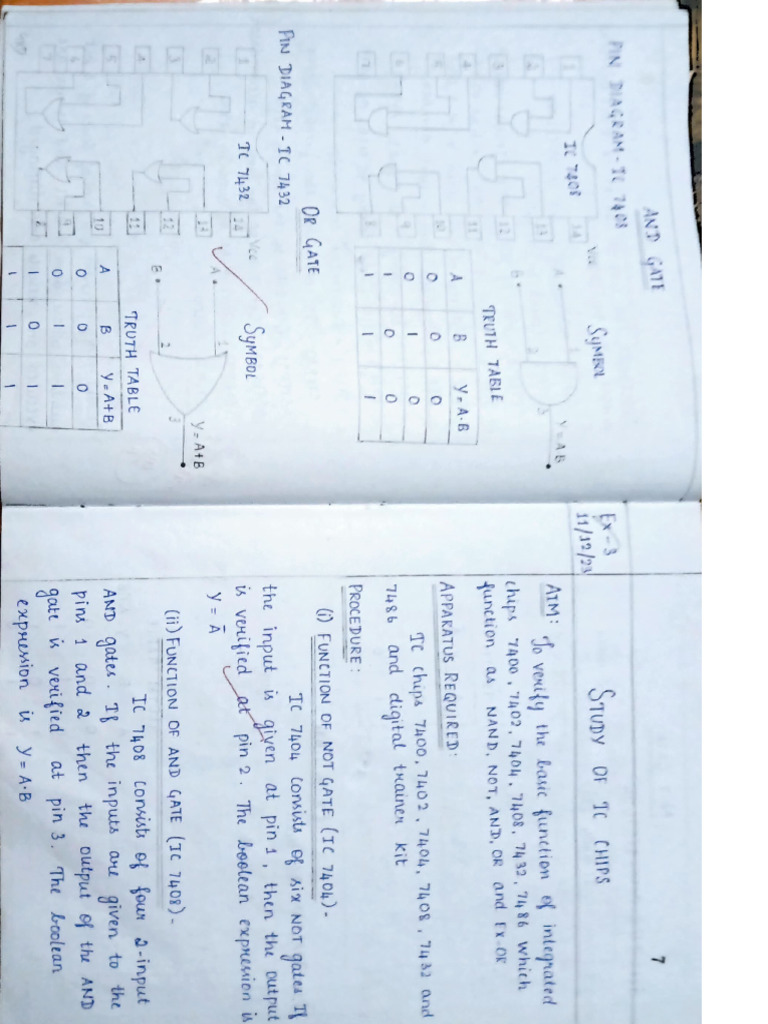 AND GATE
PIN DIAGRAM - IC 7408
SYMBOL
Vcc
1 2 3 4 5 6 7
IC 7408
14 13 12 11 10 9 8
A
B
1
2
3
Y = AB
TRUTH TABLE
A B Y = A·B
0 0 0
0 1 0
1 0 0
1 1 1
OR GATE
PIN DIAGRAM - IC 7432
SYMBOL
Vcc
1 2 3 4 5 6 7
IC 7432
14 13 12 11 10 9 8
A
B
1
2
3
Y = A+B
TRUTH TABLE
A B Y = A+B
0 0 0
0 1 1
1 0 1
1 1 1
7
Ex - 3
11/12/23
STUDY OF IC CHIPS
AIM: To verify the basic function of integrated
chips 7400, 7402, 7404, 7408, 7432, 7486 which
function as NAND, NOT, AND, OR and EX-OR
APPARATUS REQUIRED:
IC chips 7400, 7402, 7404, 7408, 7432 and
7486 and digital trainer kit
PROCEDURE:
(i) FUNCTION OF NOT GATE (IC 7404) -
IC 7404 consists of six NOT gates If
the input is given at pin 1, then the output
is verified at pin 2. The boolean expression is
Y = Ā
(ii) FUNCTION OF AND GATE (IC 7408) -
IC 7408 consists of four 2-input
AND gates. If the inputs are given to the
pins 1 and 2 then the output of the AND
gate is verified at pin 3. The boolean
expression is Y = A·B